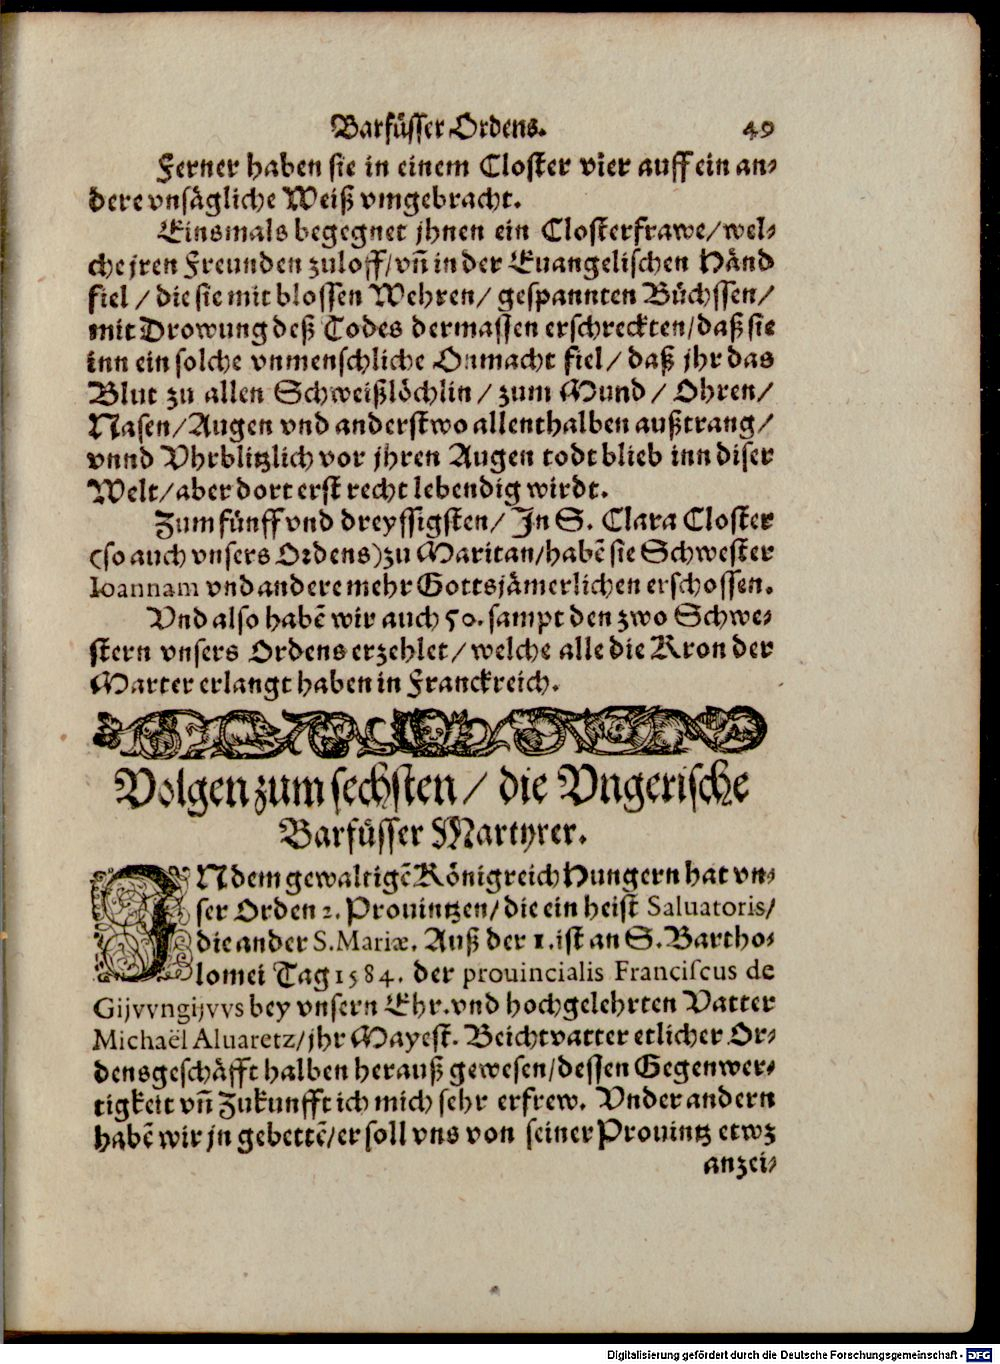 Barfüsser Ordens. 49
Ferner haben sie in einem Closter vier auff ein an-
dere vnsägliche Weiß vmgebracht.
Einsmals begegnet jhnen ein Closterfrawe/wel-
che jren Freunden zuloff/vñ in der Euangelischen Händ
fiel / die sie mit blossen Wehren/ gespannten Büchssen/
mit Drowung deß Todes dermassen erschreckten/daß sie
inn ein solche vnmenschliche Onmacht fiel/ daß jhr das
Blut zu allen Schweißlöchlin / zum Mund / Ohren/
Nasen/Augen vnd anderstwo allenthalben außtrang/
vnnd Vhrblitzlich vor jhren Augen todt blieb inn diser
Welt/aber dort erst recht lebendig wirdt.
Zum fünff vnd dreyssigsten/ In S. Clara Closter
(so auch vnsers Ordens) zu Maritan/habē sie Schwester
Ioannam vnd andere mehr Gottsjämerlichen erschossen.
Vnd also habē wir auch 50. sampt den zwo Schwe-
stern vnsers Ordens erzehlet/welche alle die Kron der
Marter erlangt haben in Franckreich.
Volgen zum sechsten/ die Vngerische
Barfüsser Martyrer.
INdem gewaltigē Königreich Hungern hat vn-
ser Orden 2. Prouintzen/die ein heist Saluatoris/
die ander S. Mariæ. Auß der 1. ist an S. Bartho-
lomei Tag 1584. der prouincialis Franciscus de
Gijvvngijvvs bey vnsern Ehr. vnd hochgelehrten Vatter
Michaël Aluaretz/jhr Mayest. Beichtvatter etlicher Or-
densgeschäfft halben herauß gewesen/dessen Gegenwer-
tigkeit vñ Zukunfft ich mich sehr erfrew. Vnder andern
habē wir jn gebettē/er soll vns von seiner Prouintz etwz
anzei-
Digitalisierung gefördert durch die Deutsche Forschungsgemeinschaft - DFG